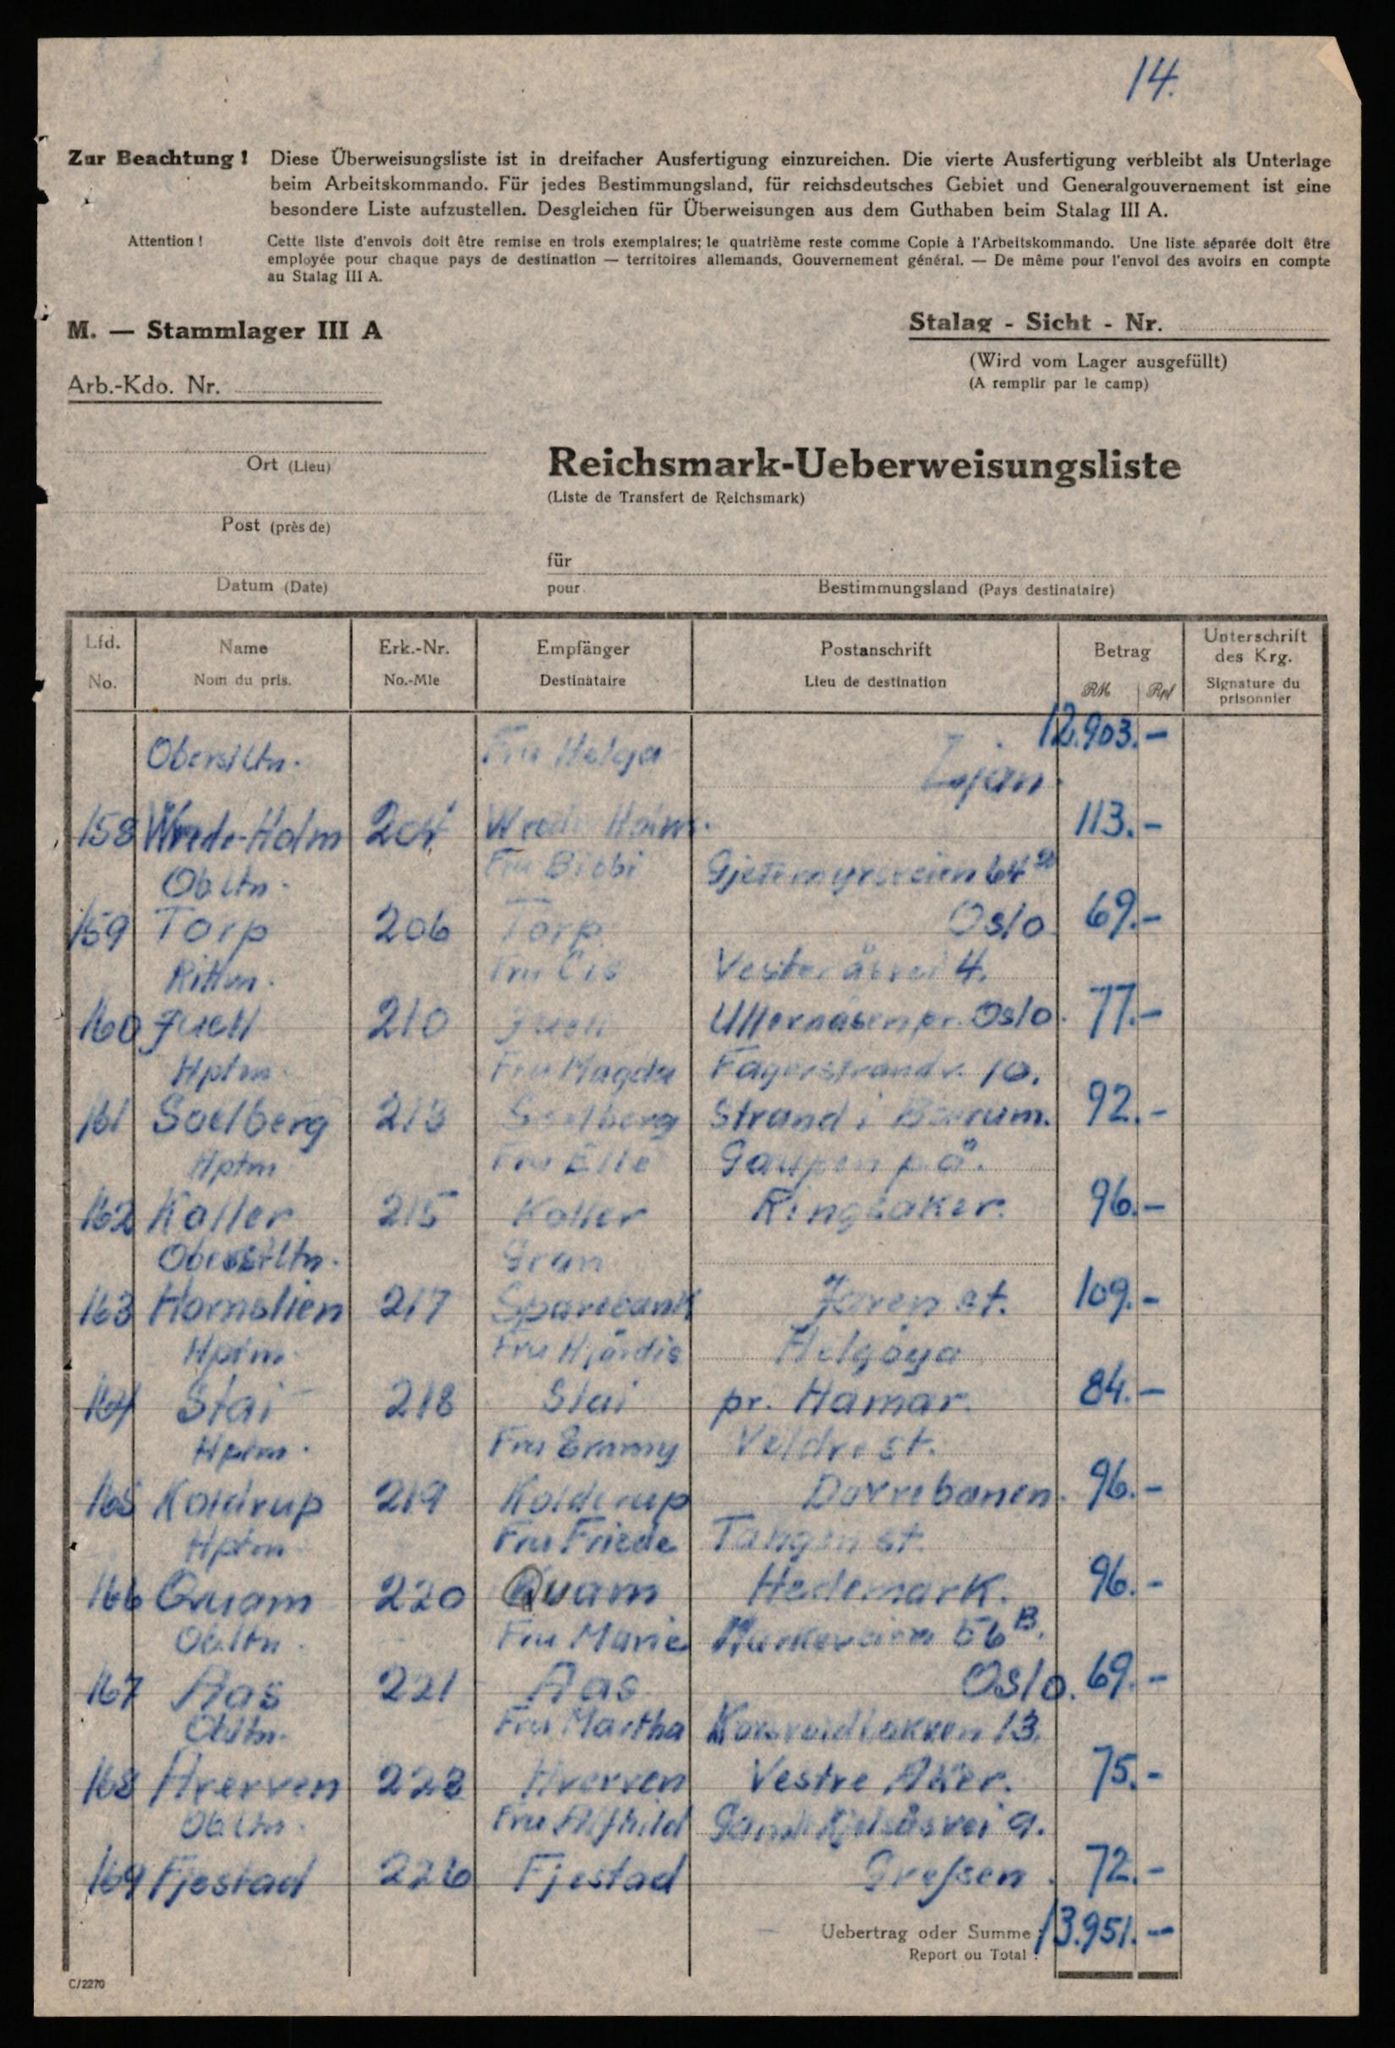 14.
Zur Beachtung! Diese Überweisungsliste ist in dreifacher Ausfertigung einzureichen. Die vierte Ausfertigung verbleibt als Unterlage
beim Arbeitskommando. Für jedes Bestimmungsland, für reichsdeutsches Gebiet und Generalgouvernement ist eine
besondere Liste aufzustellen. Desgleichen für Überweisungen aus dem Guthaben beim Stalag III A.
Attention! Cette liste d'envois doit être remise en trois exemplaires; le quatrième reste comme Copie à l'Arbeitskommando. Une liste séparée doit être
employée pour chaque pays de destination — territoires allemands, Gouvernement général. — De même pour l'envoi des avoirs en compte
au Stalag III A.
M. — Stammlager III A
Stalag - Sicht - Nr.
(Wird vom Lager ausgefüllt)
(A remplir par le camp)
Arb.-Kdo. Nr.
Ort (Lieu)
Reichsmark-Ueberweisungsliste
(Liste de Transfert de Reichsmark)
Post (près de)
für
Datum (Date)
pour Bestimmungsland (Pays destinataire)
Lfd. Name Erk.-Nr. Empfänger Postanschrift Betrag Unterschrift des Krg.
No. Nom du pris. No.-Mle Destinataire Lieu de destination RM Rpf Signature du prisonnier
12.903.-
Oberstltn. Fru Helga Ljan.
158 Wrede-Holm 204 Wrede Holm. 113.-
Obltn. Fru Bibbi 64
159 Torp 206 Torp Oslo 69.-
Rittm. Fru Cis Vesteråsvei 4.
160 Juell 210 Juell Ullernåsen pr. Oslo. 77.-
Hptm. Fru Magda Fagerstrandv. 10.
161 Soelberg 213 Soelberg Strand i Bærum. 92.-
Hptm Fru Elle Gaupen p.å.
162 Koller 215 Koller Ringsaker. 96.-
Oberstltn. Gran
163 Hornslien 217 Sparebank Jaren st. 109.-
Hptm. Fru Hjördis Helgöya
164 Stai 218 Stai pr. Hamar. 84.-
Hptm. Fru Emmy Veldre st.
165 Koldrup 219 Kolderup Dovrebanen. 96.-
Hptm Fru Friede Tangen st.
166 Quam 220 Quam Hedemark. 96.-
Obltn. Fru Marie 56 B.
167 Aas 221 Aas Oslo. 69.-
Obltn. Fru Martha 13.
168 Hverven 223 Hverven Vestre Aker. 75.-
Obltn. Fru Alfhild Gamle Kjelsåsvei 9.
169 Fjestad 226 Fjestad Grefsen. 72.-
Uebertrag oder Summe: 13.951.-
Report ou Total:
C/2270